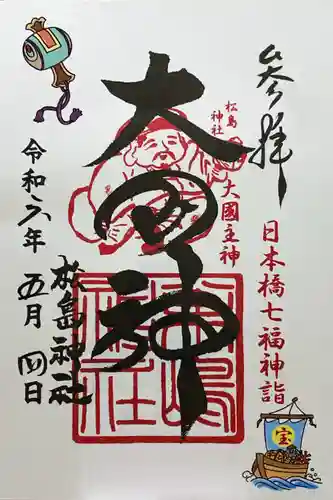 奉拝
松島
神社
大國主神
日本橋七福神詣
大国神
松島神社
松島神社
令和六年
五月
四日
宝